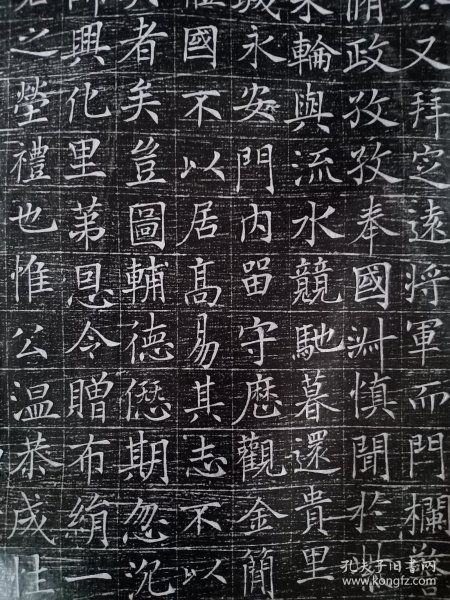 又拜定遠將軍而門欄
脩政孜孜奉國淵慎聞於
輪與流水競馳暮還貴里
永安門內留守歷觀金簡
國不以居高易其志不以
者矣豈圖輔德愆期忽沉
興化里第恩令贈布絹一
之塋禮也惟公温恭成性
孔夫子旧书网
www.kongfz.com